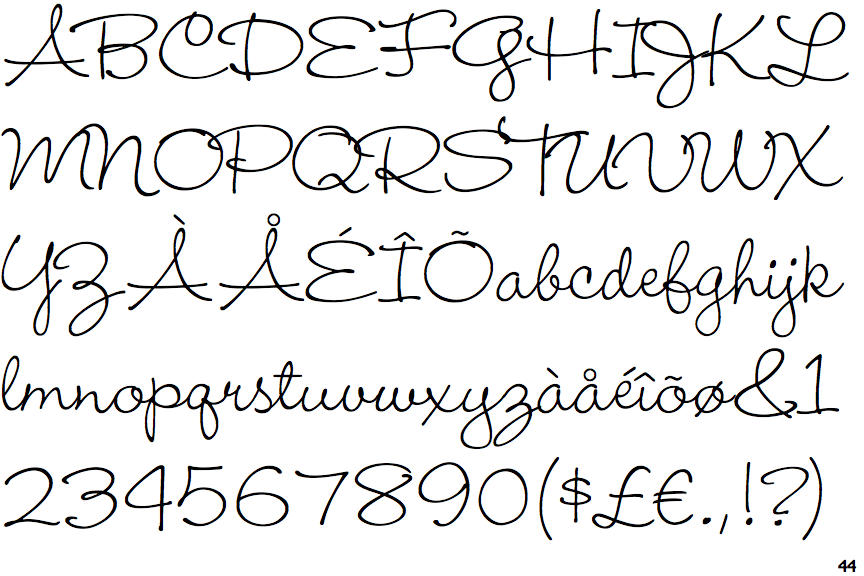 ABCDEFGHIJKL
MNOPQRSTUVWX
YZÀÅÉÎÕabcdefghijk
lmnopqrstuvwxyzàåéîõø&1
234567890($£€.,!?)
44